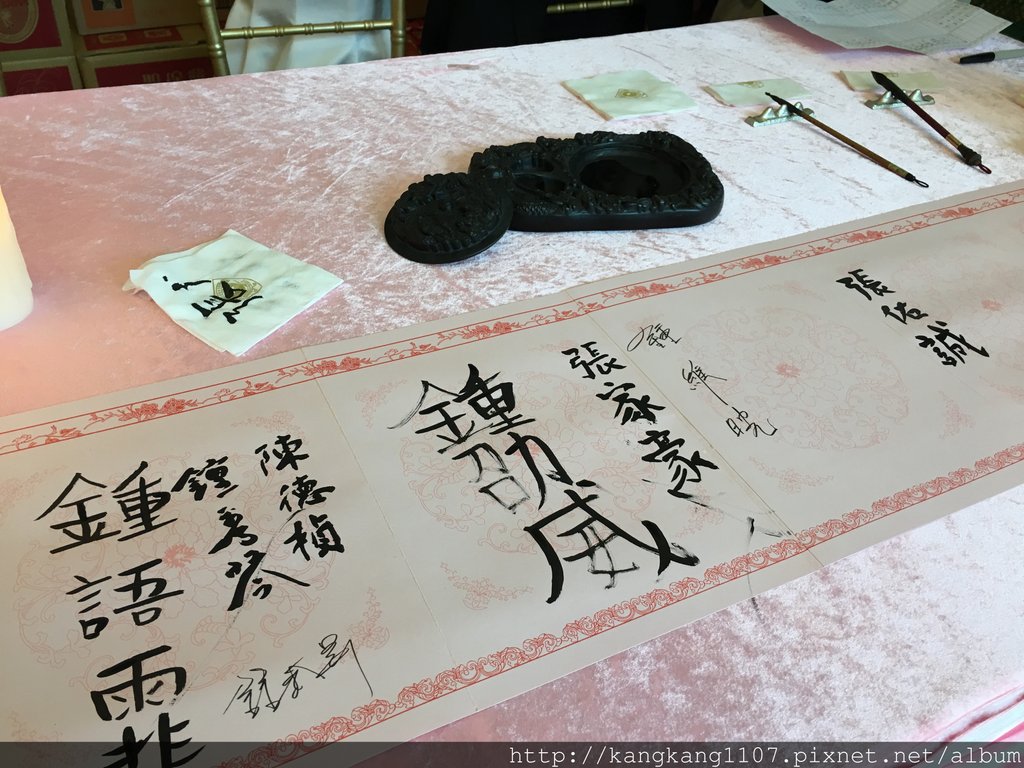 張佑誠
鍾維曉
張家豪
鍾劭威
陳德楨
鍾秀琴
鍾語霏
http://kangkang1107.pixnet.net/album